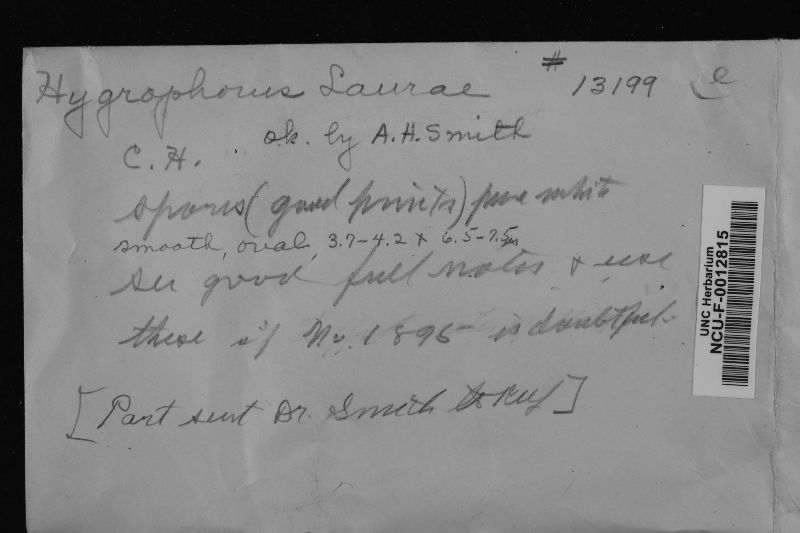 Hygrophorus Laurae # 13199 e
ok. by A.H. Smith
C. H.
spores (good prints) pure white
smooth, oval, 3.7-4.2 x 6.5-7.5µ
See good full notes & use
these if No. 1895 is doubtful.
[Part sent Dr. Smith to keep]
UNC Herbarium
NCU-F-0012815